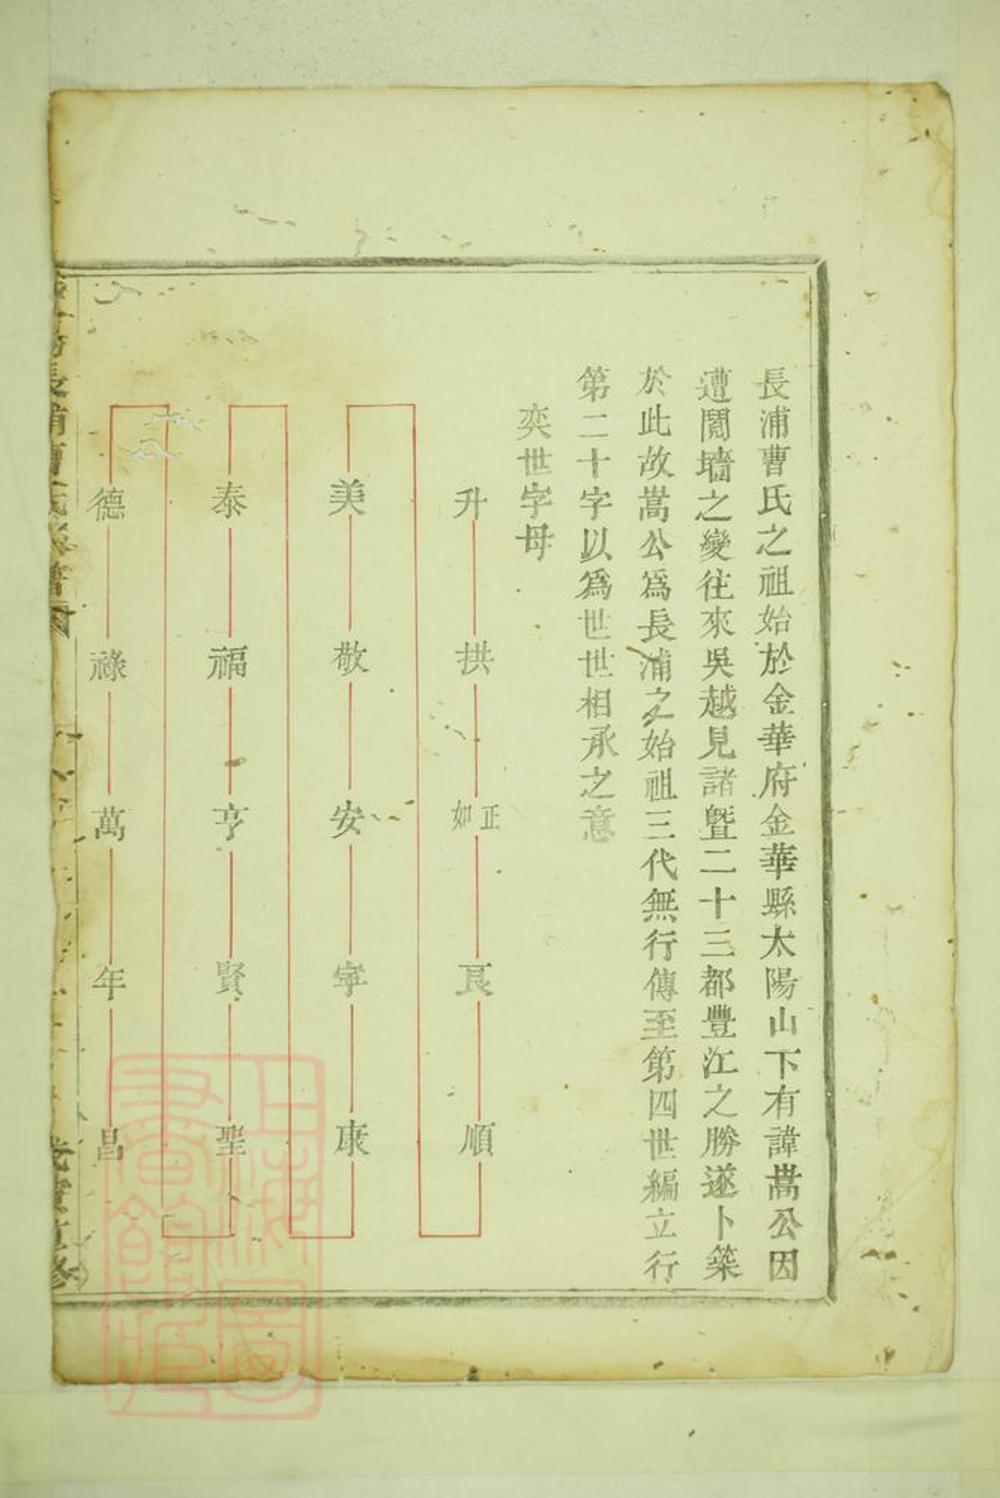 長浦曹氏之祖始於金華府金華縣太陽山下有諱嵩公因
遭鬩墻之變往來吳越見諸暨二十三都豐江之勝遂卜築
於此故嵩公爲長浦之始祖三代無行傳至第四世編立行
第二十字以爲世世相承之意
奕世字母
升 拱 正如 艮 順
美 敬 安 寧 康
泰 福 亨 賢 聖
德 祿 萬 年 昌
長浦曹氏
上海圖書館藏